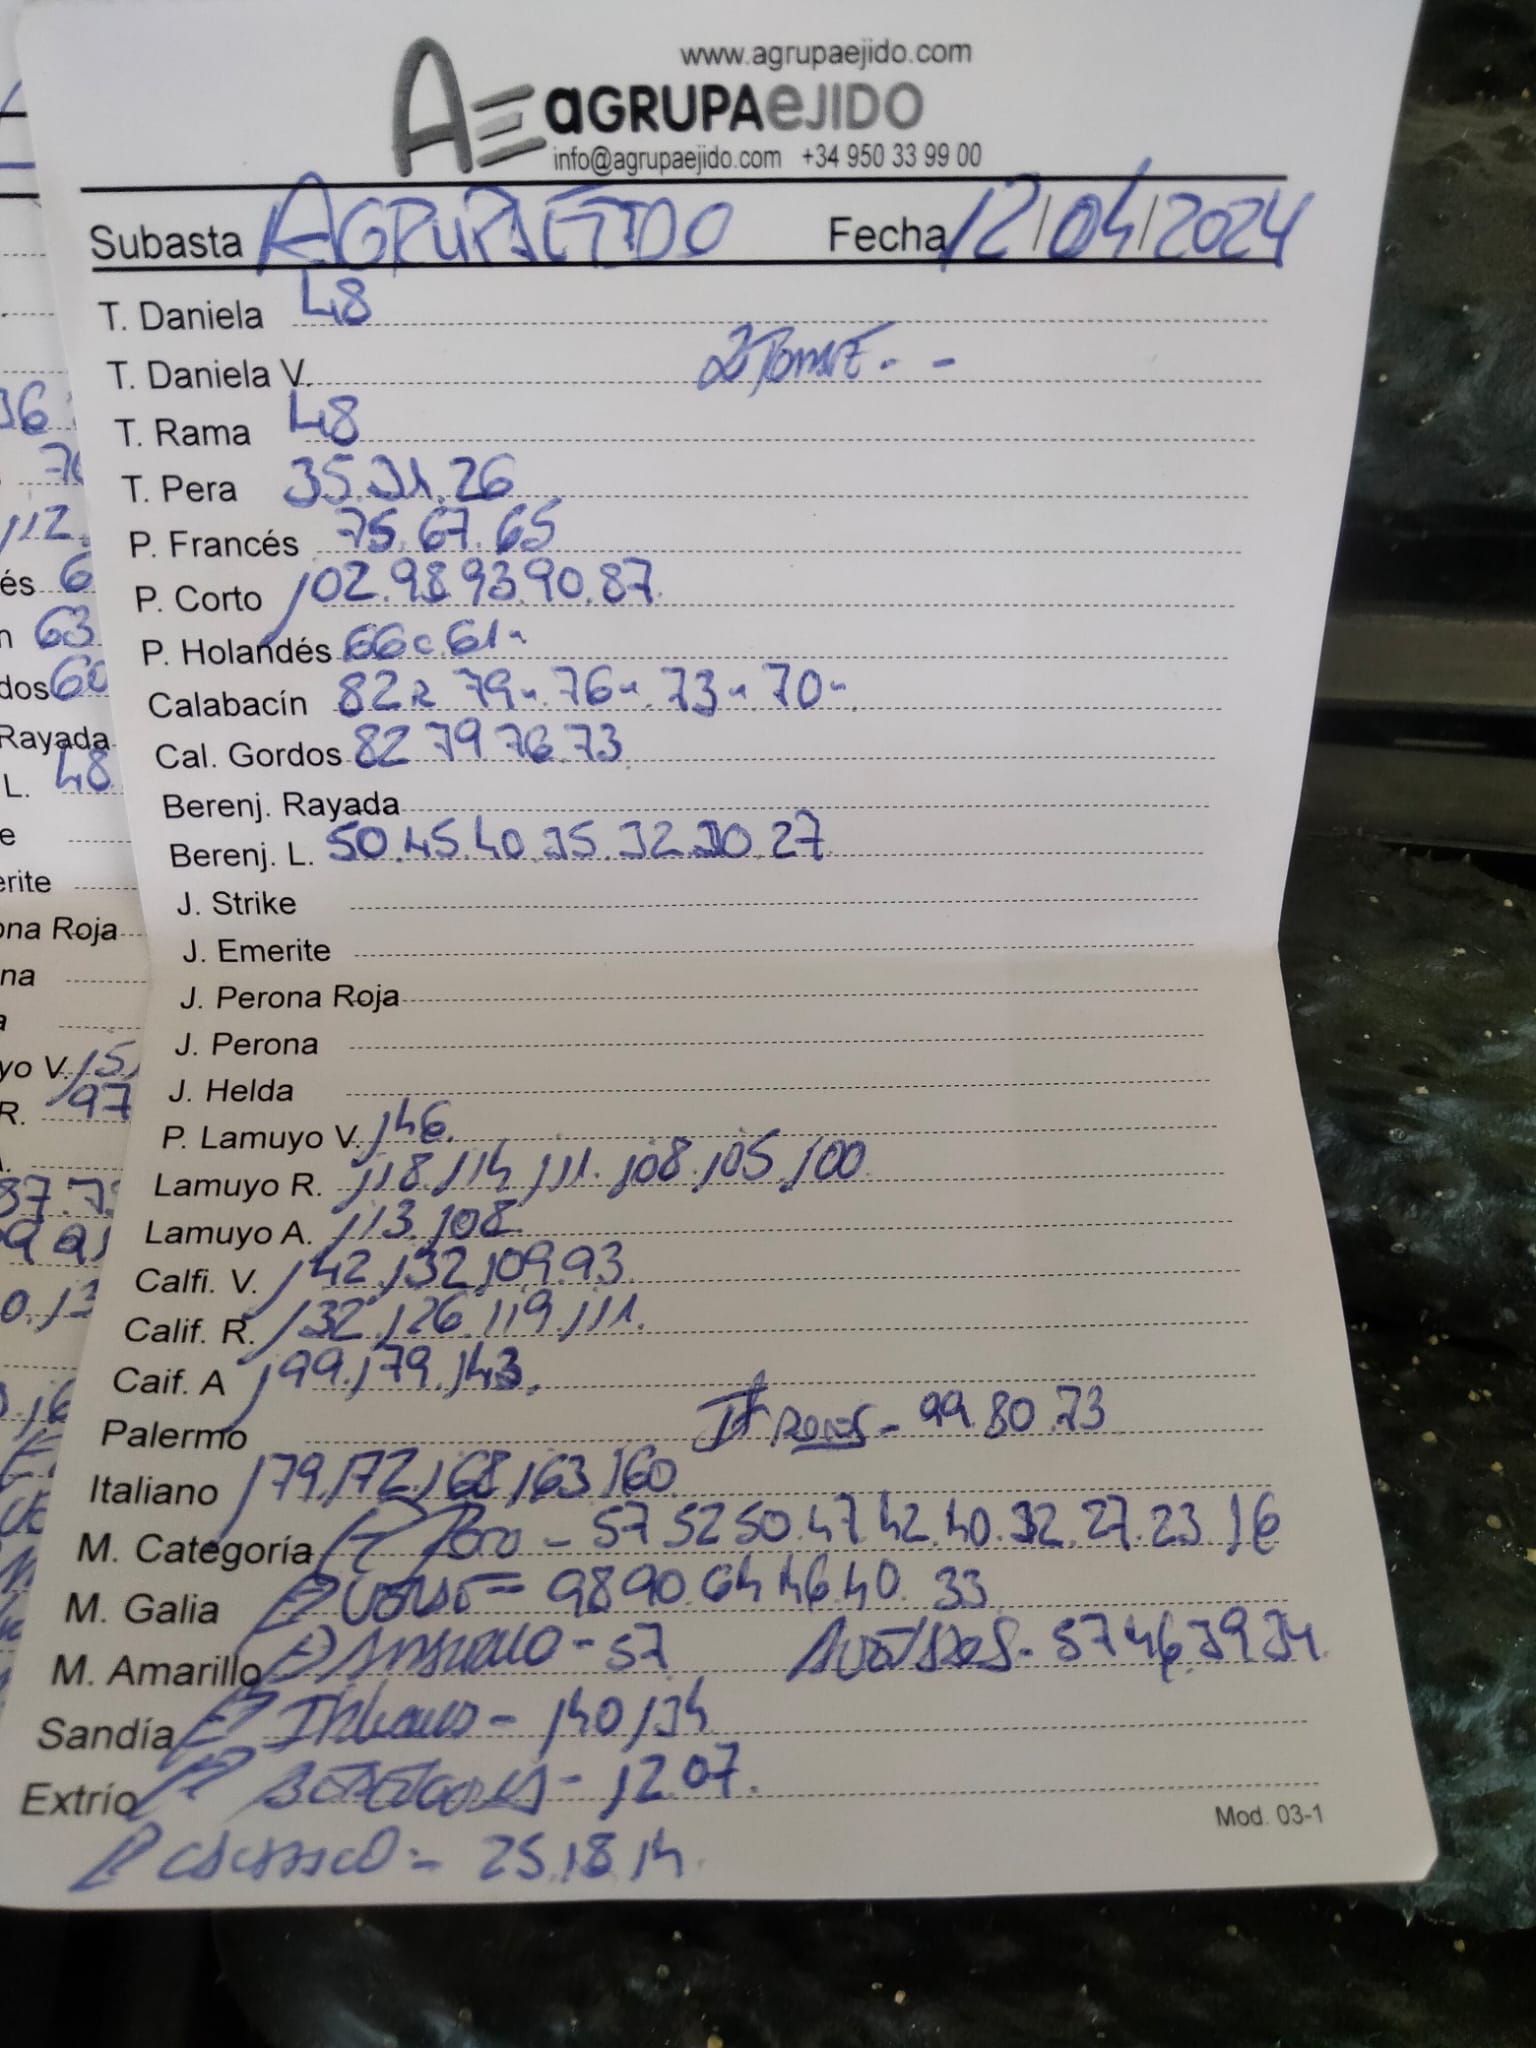 www.agrupaejido.com
AE aGRUPAeJIDO
info@agrupaejido.com +34 950 33 99 00
Subasta AGRUPAEJIDO Fecha 12/04/2024
T. Daniela 48
T. Daniela V.
T. Rama 48
T. Pera 35.31.26
P. Francés 75.67.65
P. Corto 102.98.93.90.87.
P. Holandés 66 61
Calabacín 82 79 76 73 70
Cal. Gordos 82 79 76.73
Berenj. Rayada
Berenj. L. 50.45.40.35.32.30.27
J. Strike
J. Emerite
J. Perona Roja
J. Perona
J. Helda
P. Lamuyo V. 146.
Lamuyo R. 118.114.111.108.105.100
Lamuyo A. 113.108
Calfi. V. 142.132.109.93.
Calif. R. 132.126.119.111.
Caif. A 199.179.143.
Palermo 99.80.73
Italiano 179.172.168.163.160
M. Categoría - 57 52 50.47 42.40.32.27.23.16
M. Galia 98 90.64 46.40.33
M. Amarillo - 57 - 57 46.39 34.
Sandía - 140.134
Extrío - 12.07.
- 25.18.14.
Mod. 03-1
36
112.
és 6
63
dos 60
Rayada
L. 48
erite
ona Roja
na
yo V. 15
R. 197